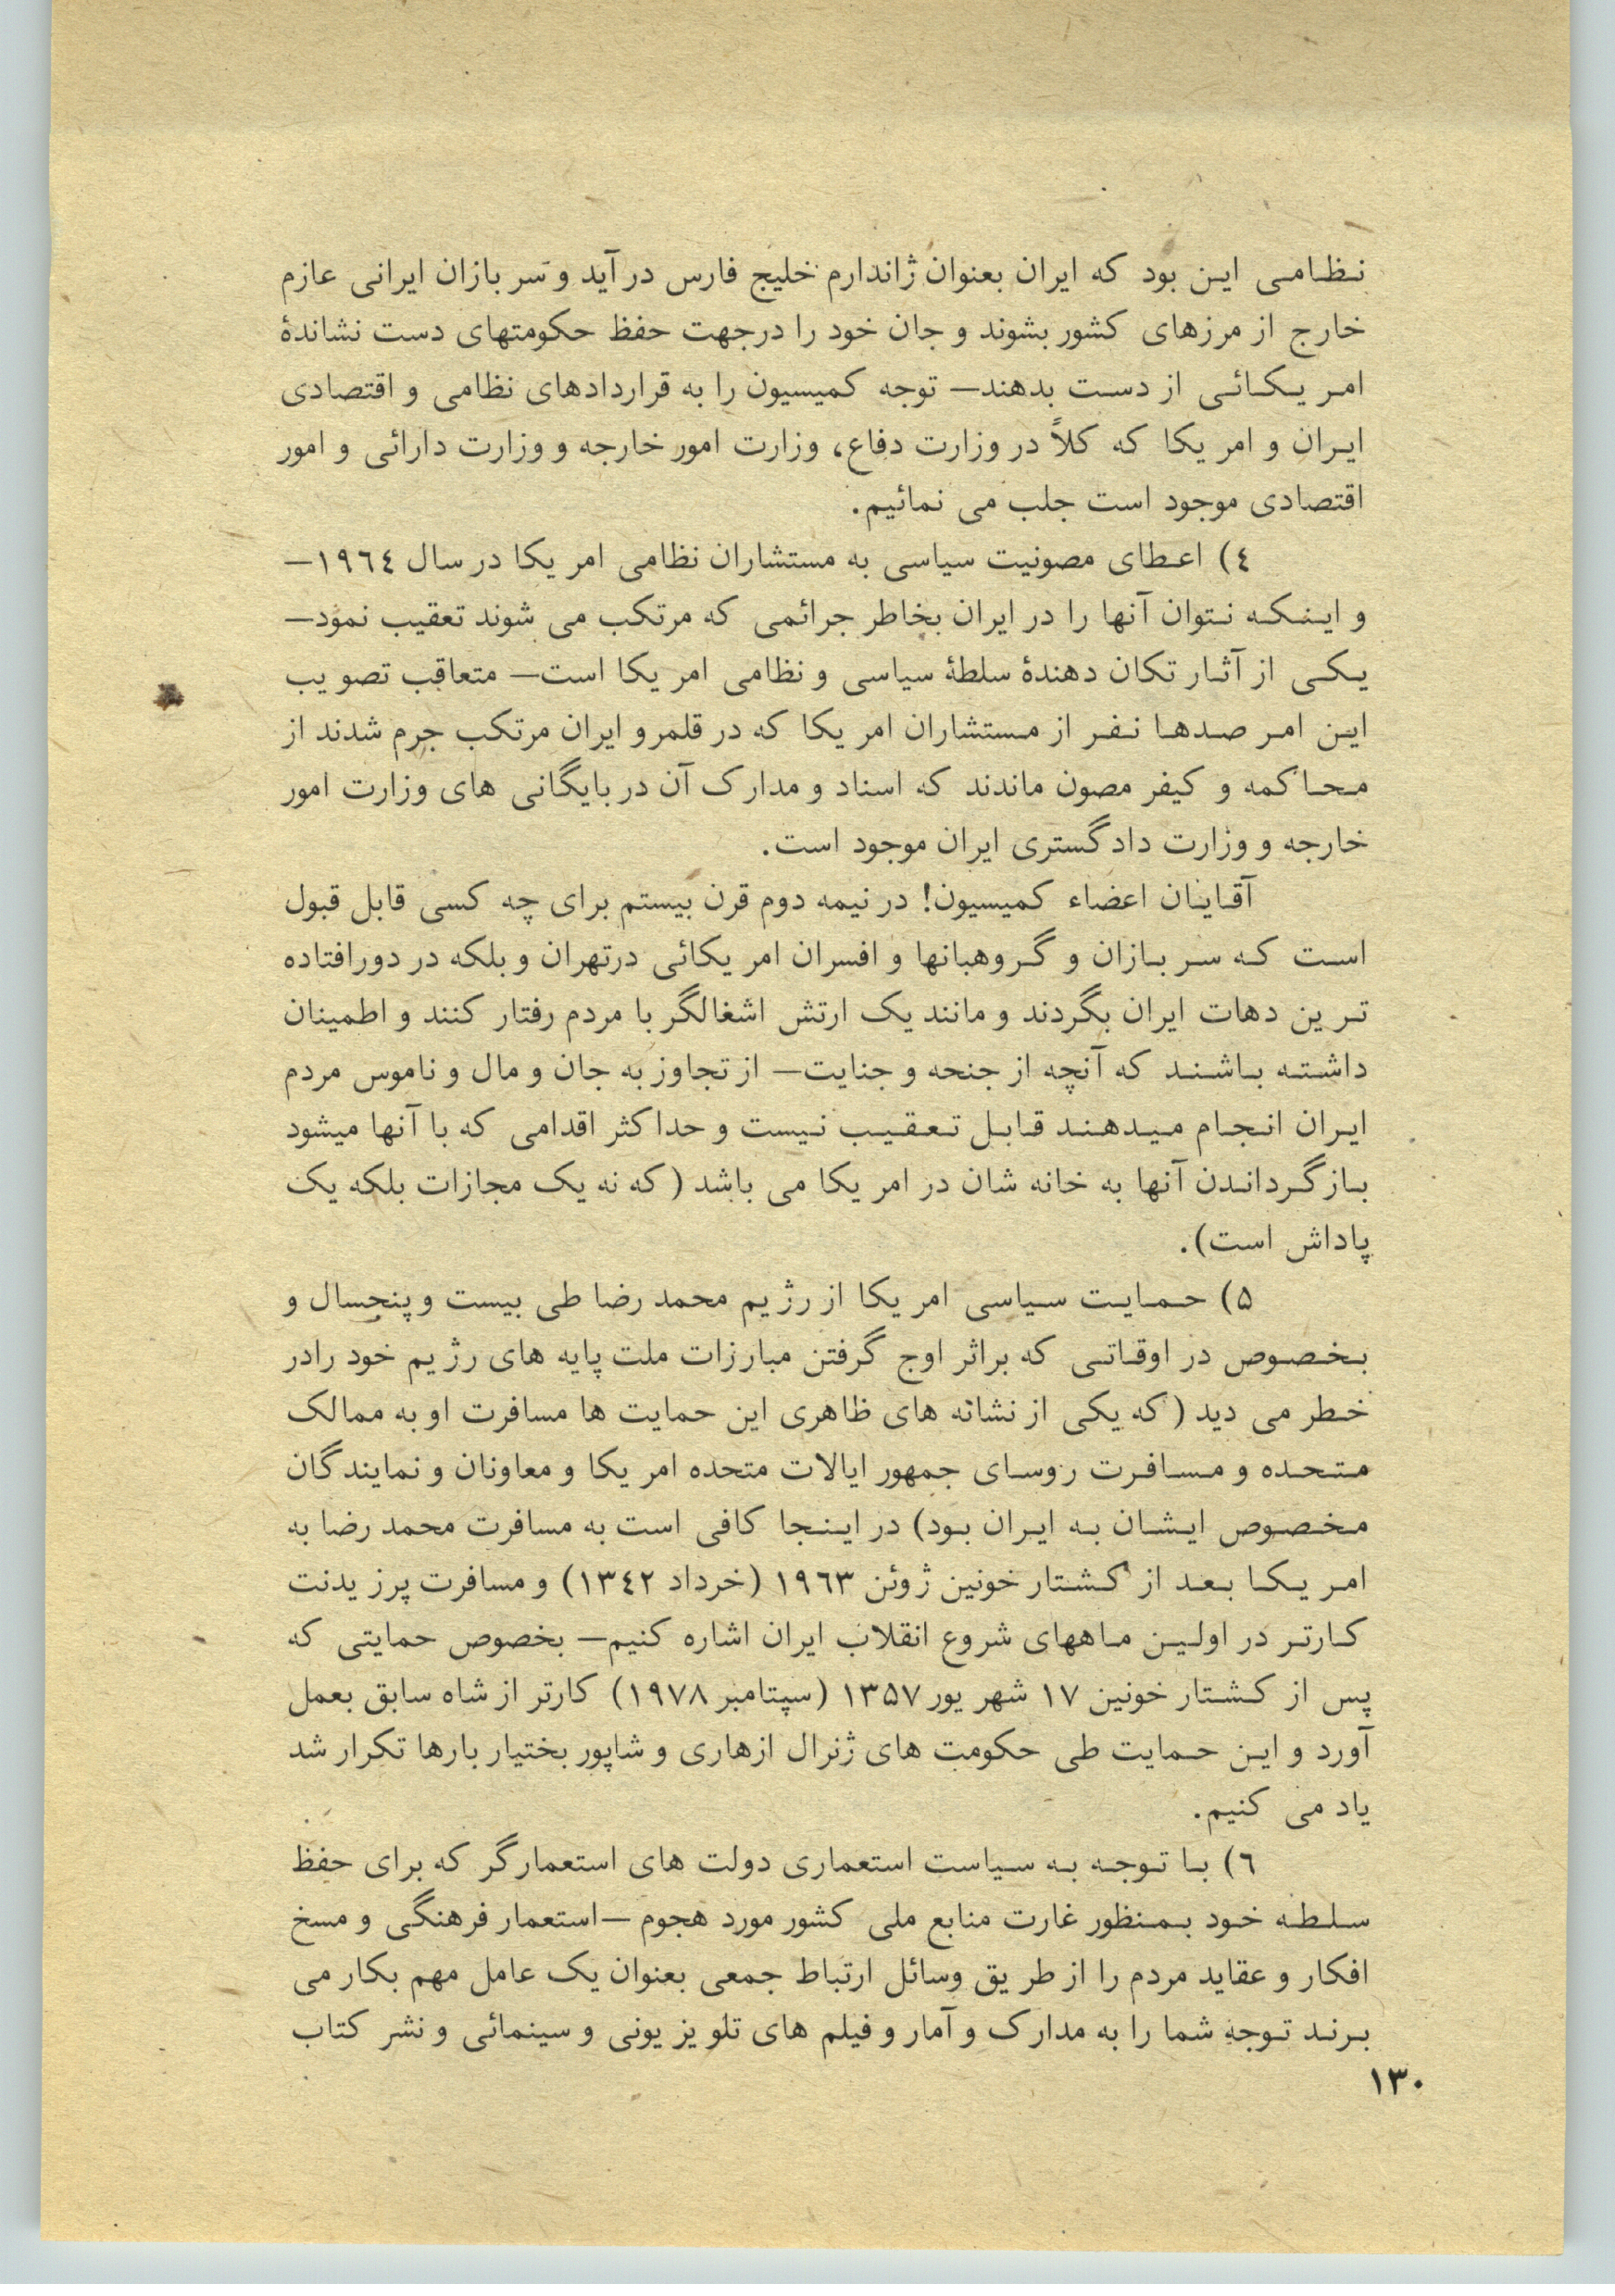 نظامی این بود که ایران بعنوان ژاندارم خلیج فارس درآید و سربازان ایرانی عازم
خارج از مرزهای کشور بشوند و جان خود را درجهت حفظ حکومتهای دست نشاندۀ
امریکائی از دست بدهند— توجه کمیسیون را به قراردادهای نظامی و اقتصادی
ایران و امریکا که کلاً در وزارت دفاع، وزارت امور خارجه و وزارت دارائی و امور
اقتصادی موجود است جلب می نمائیم.
٤) اعطای مصونیت سیاسی به مستشاران نظامی امریکا در سال ١٩٦٤—
و اینکه نتوان آنها را در ایران بخاطر جرائمی که مرتکب می شوند تعقیب نمود—
یکی از آثار تکان دهندۀ سلطۀ سیاسی و نظامی امریکا است— متعاقب تصویب
این امر صدها نفر از مستشاران امریکا که در قلمرو ایران مرتکب جرم شدند از
محاکمه و کیفر مصون ماندند که اسناد و مدارک آن در بایگانی های وزارت امور
خارجه و وزارت دادگستری ایران موجود است.
آقایان اعضاء کمیسیون! در نیمه دوم قرن بیستم برای چه کسی قابل قبول
است که سربازان و گروهبانها و افسران امریکائی درتهران و بلکه در دورافتاده
ترین دهات ایران بگردند و مانند یک ارتش اشغالگر با مردم رفتار کنند و اطمینان
داشته باشند که آنچه از جنحه و جنایت— از تجاوز به جان و مال و ناموس مردم
ایران انجام میدهند قابل تعقیب نیست و حداکثر اقدامی که با آنها میشود
بازگرداندن آنها به خانه شان در امریکا می باشد (که نه یک مجازات بلکه یک
پاداش است).
۵) حمایت سیاسی امریکا از رژیم محمد رضا طی بیست و پنجسال و
بخصوص در اوقاتی که براثر اوج گرفتن مبارزات ملت پایه های رژیم خود رادر
خطر می دید (که یکی از نشانه های ظاهری این حمایت ها مسافرت او به ممالک
متحده و مسافرت روسای جمهور ایالات متحده امریکا و معاونان و نمایندگان
مخصوص ایشان به ایران بود) در اینجا کافی است به مسافرت محمد رضا به
امریکا بعد از کشتار خونین ژوئن ١٩٦٣ (خرداد ١٣٤٢) و مسافرت پرزیدنت
کارتر در اولین ماههای شروع انقلاب ایران اشاره کنیم— بخصوص حمایتی که
پس از کشتار خونین ١٧ شهریور ١٣۵٧ (سپتامبر ١٩٧٨) کارتر از شاه سابق بعمل
آورد و این حمایت طی حکومت های ژنرال ازهاری و شاپور بختیار بارها تکرار شد
یاد می کنیم.
٦) با توجه به سیاست استعماری دولت های استعمارگر که برای حفظ
سلطه خود بمنظور غارت منابع ملی کشور مورد هجوم —استعمار فرهنگی و مسخ
افکار و عقاید مردم را از طریق وسائل ارتباط جمعی بعنوان یک عامل مهم بکار می
برند توجه شما را به مدارک و آمار و فیلم های تلویزیونی و سینمائی و نشر کتاب
١٣٠